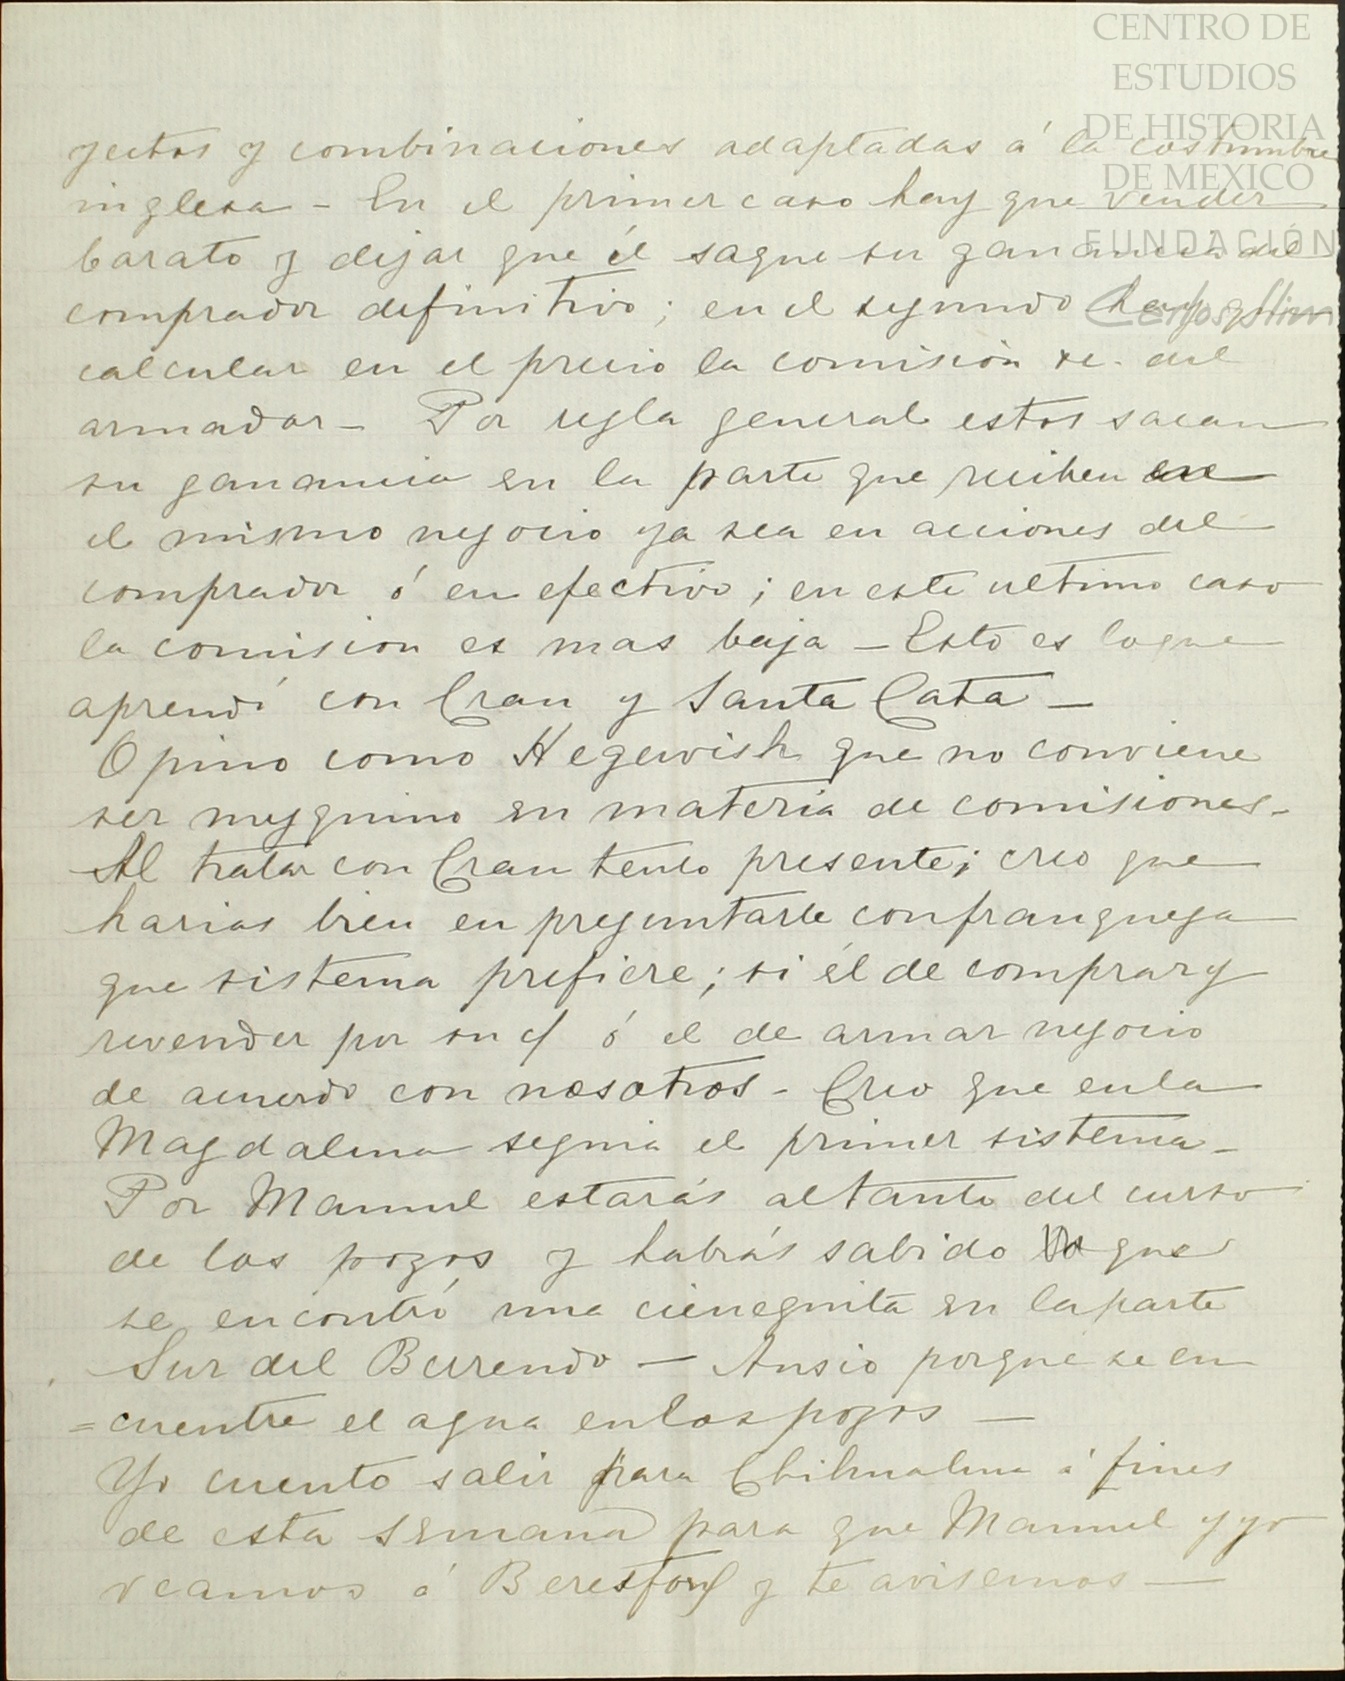 CENTRO DE
ESTUDIOS
DE HISTORIA
DE MEXICO
FUNDACIÓN
Carlos Slim
yectos y combinaciones adaptadas á la costumbre
inglesa - En el primer caso hay que vender
barato y dejar que él saque su ganancia del
comprador definitivo; en el segundo hay que
calcular en el precio la comisión &c. del
armador - Por regla general estos sacan
su ganancia en la parte que reciben en
el mismo negocio ya sea en acciones del
comprador ó en efectivo; en este ultimo caso
la comision es mas baja - Esto es lo que
aprendí con Cran y Santa Cata -
Opino como Hegewish que no conviene
ser mezquino en materia de comisiones -
Al tratar con Cran tenlo presente; creo que
harias bien en preguntarle con franqueza
que sistema prefiere; si él de comprar y
revender por su c/ ó el de armar negocio
de acuerdo con nosotros - Creo que en la
Magdalena seguia el primer sistema -
Por Manuel estarás al tanto del curso
de los pozos y habrás sabido que
se encontró una cieneguita en la parte
Sur del Berrendo - Ansio porque se en
= cuentre el agua en los pozos -
Yo cuento salir para Chihuahua á fines
de esta semana para que Manuel y yo
veamos á Beresford y te avisemos -